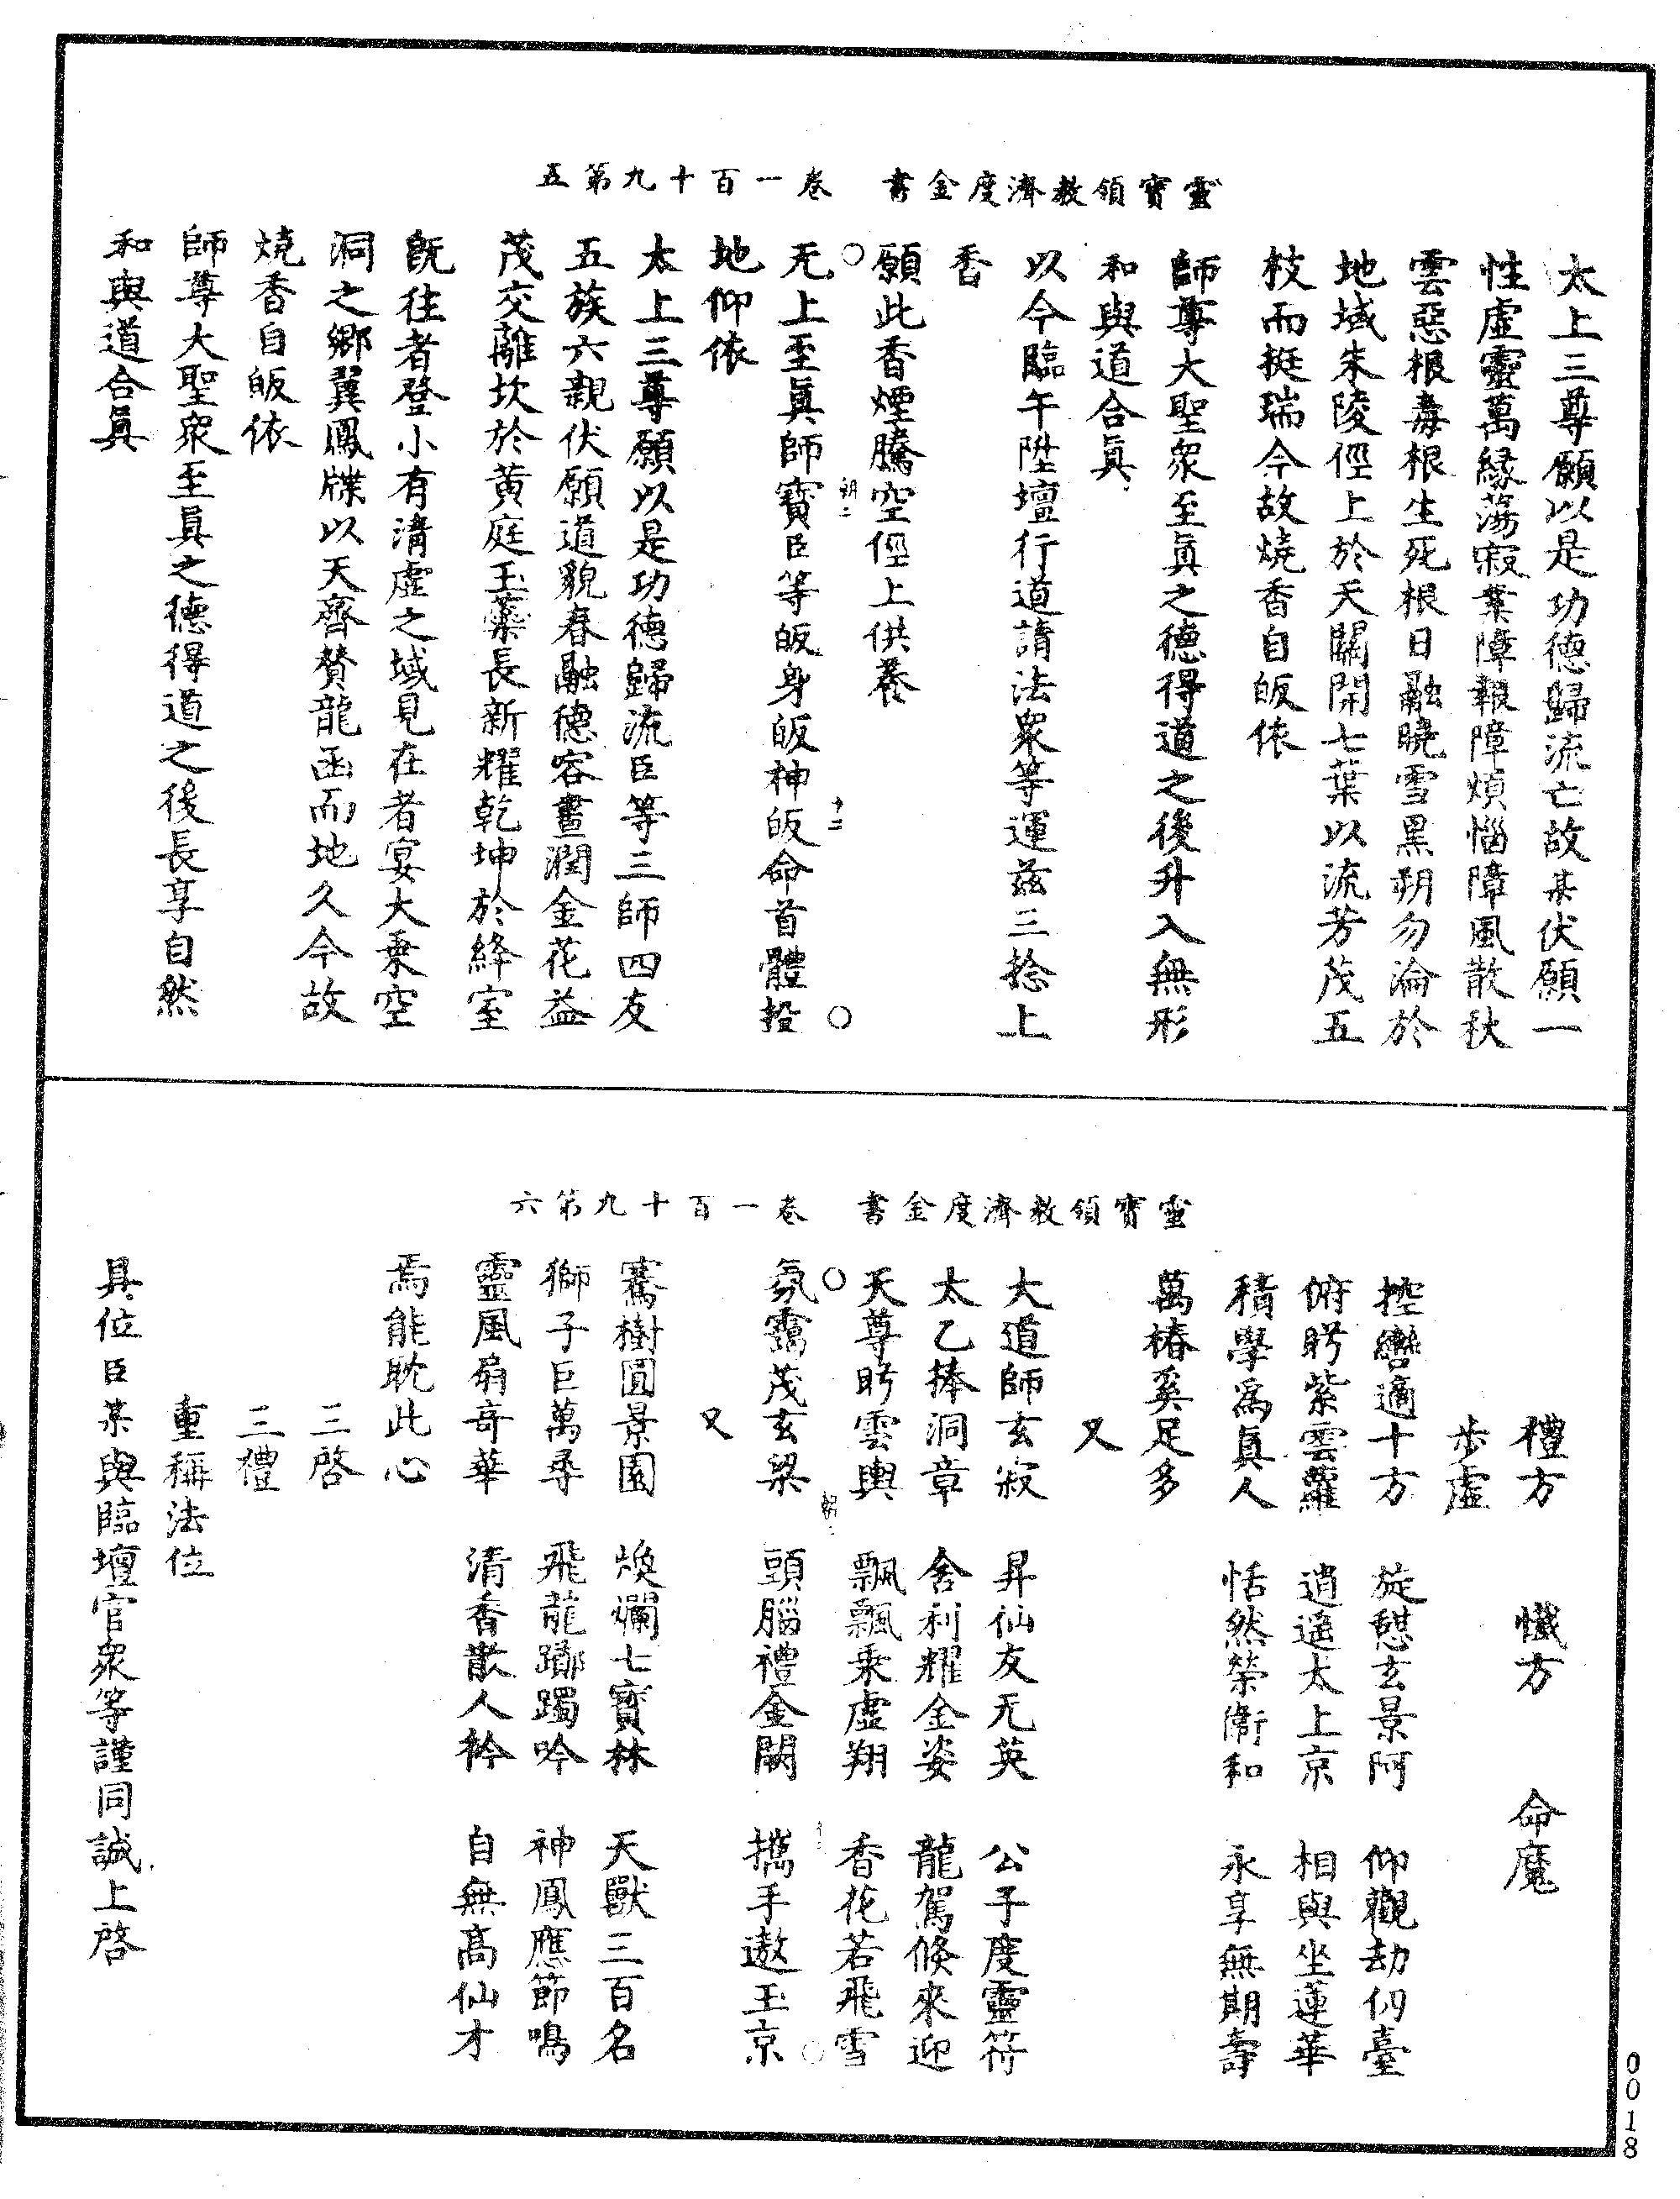 靈寶領教濟度金書　卷一百十九第五
太上三尊願以是功德歸流亡故某伏願一
性虛靈萬緣蕩寂業障報障煩惱障風散秋
雲惡根毒根生死根日融曉雪黑朔勿淪於
地域朱陵徑上於天關開七葉以流芳茂五
枝而挺瑞今故燒香自皈依
師尊大聖眾至真之德得道之後升入無形
和與道合真
以今臨午陞壇行道請法眾等運茲三捻上
香
願此香煙騰空徑上供養
无上至真師寶臣等皈身皈神皈命首體投
地仰依
太上三尊願以是功德歸流臣等三師四友
五族六親伏願道貌春融德容晝潤金花益
茂交離坎於黃庭玉蘂長新耀乾坤於絳室
既往者登小有清虛之域見在者宴大乘空
洞之鄉翼鳳牒以天齊贊龍函而地久今故
燒香自皈依
師尊大聖眾至真之德得道之後長享自然
和與道合真
靈寶領教濟度金書　卷一百十九第六
禮方　懺方　命魔
步虛
控轡適十方　旋憩玄景阿　仰觀劫仞臺
俯眄紫雲蘿　逍遙太上京　相與坐蓮華
積學為真人　恬然榮衛和　永享無期壽
萬椿奚足多
又
大道師玄寂　昇仙友无英　公子度靈符
太乙捧洞章　舍利耀金姿　龍駕倏來迎
天尊眄雲輿　飄飄乘虛翔　香花若飛雪
氛靄茂玄梁　頭腦禮金闕　攜手遨玉京
又
騫樹圓景園　煥爛七寶林　天獸三百名
獅子巨萬尋　飛龍躑躅吟　神鳳應節鳴
靈風扇奇華　清香散人衿　自無高仙才
焉能耽此心
三啓
三禮
重稱法位
具位臣某與臨壇官眾等謹同誠上啓
0018